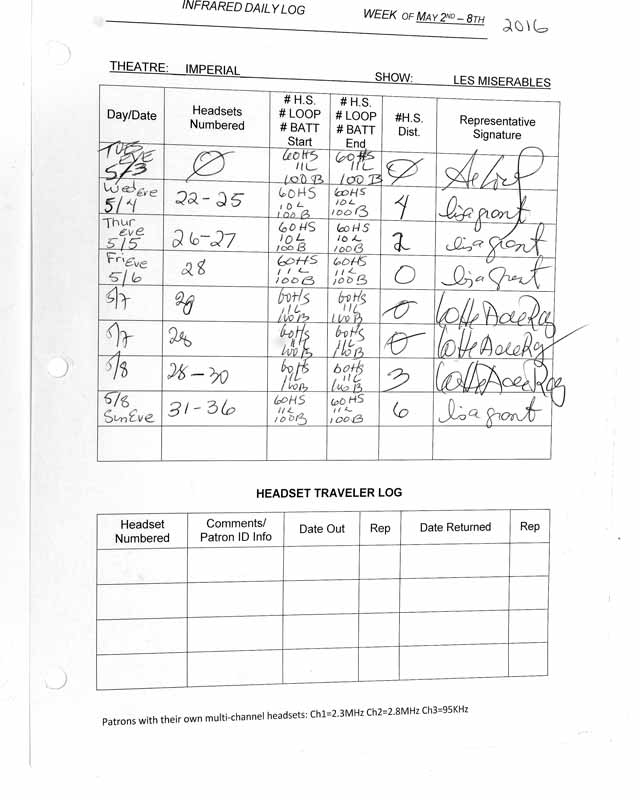 INFRARED DAILY LOG WEEK OF MAY 2ND – 8TH 2016
THEATRE: IMPERIAL SHOW: LES MISERABLES
Day/Date Headsets Numbered # H.S. # LOOP # BATT Start # H.S. # LOOP # BATT End #H.S. Dist. Representative Signature
TUES EVE 5/3 Ø 60HS 11L 100B 60HS 11L 100B 0
Wed Eve 5/4 22-25 60HS 10L 100B 60HS 10L 100B 4 lisa grant
Thur eve 5/5 26-27 60HS 10L 100B 60HS 10L 100B 2 lisa grant
Fri Eve 5/6 28 60HS 11L 100B 60HS 11L 100B 0 lisa grant
5/7 28 60HS 11L 100B 60HS 11L 100B 0
5/7 28 60HS 11L 100B 60HS 11L 100B 0
5/8 28-30 60HS 11L 100B 60HS 11L 100B 3
5/8 Sun Eve 31-36 60HS 11L 100B 60HS 11L 100B 6 lisa grant
HEADSET TRAVELER LOG
Headset Numbered Comments/ Patron ID Info Date Out Rep Date Returned Rep
Patrons with their own multi-channel headsets: Ch1=2.3MHz Ch2=2.8MHz Ch3=95KHz